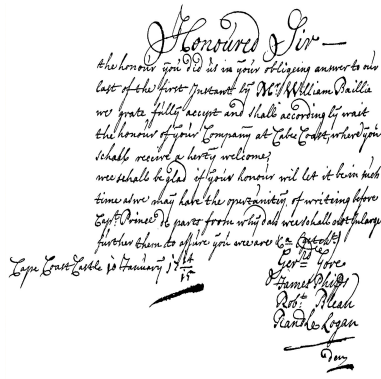 Honoured Sir —
the honour you did us in your obligeing answer to our
last of the first Instant by Mr. William Baillie
we grate fully accept and shall accordingly wait
the honour of your Company at Cabe Coast, where you
schall receive a herty welcome,
wee schall be glad if your honour wil let it be in such
time as we may have the oportunity of writing before
Capt. Prince de parts from whydah wee schall not Inlarge
further then to assure you we are
Gerrd. Gore
James Phips
Robt. Bleau
Randle Logan
Cape Coast Castle 10 January 17 14/15